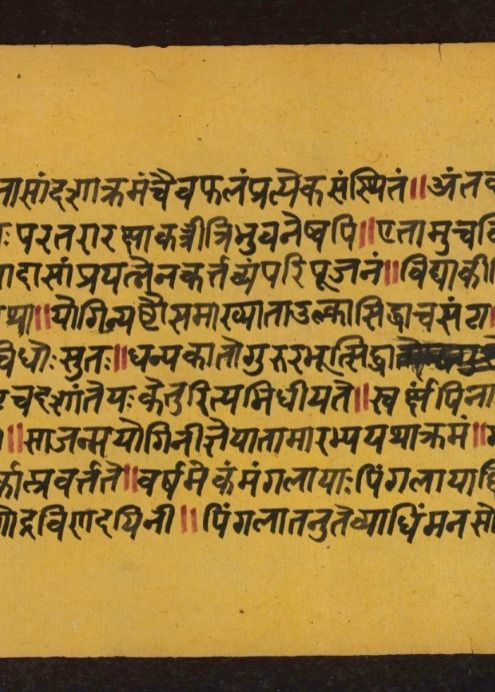 सांदशाक्रमंचैवफलंप्रत्येकसंस्थितं॥अंत
परतरारक्षाकर्त्रीत्रिभुवनेष्वपि॥एतामुच
दासांप्रयत्नेनकर्त्तव्यंपरिपूजनं॥विद्या
था॥योगिन्यष्टौसमाख्याताउल्कासिद्धाचसंटा
विधोःसुतः॥धन्यकातोगुरुरभूत्सिद्धा
चदशांतेयःकेतुरित्यभिधीयते॥स्वर्क्षंपिना
॥साजन्मयोगिनीज्ञेयातामारभ्ययथाक्रमं॥
प्रवर्त्तते॥वर्षमेकंमंगलायाःपिंगलाया
द्रविणदायिनी॥पिंगलातनुतेव्याधिंमनसो